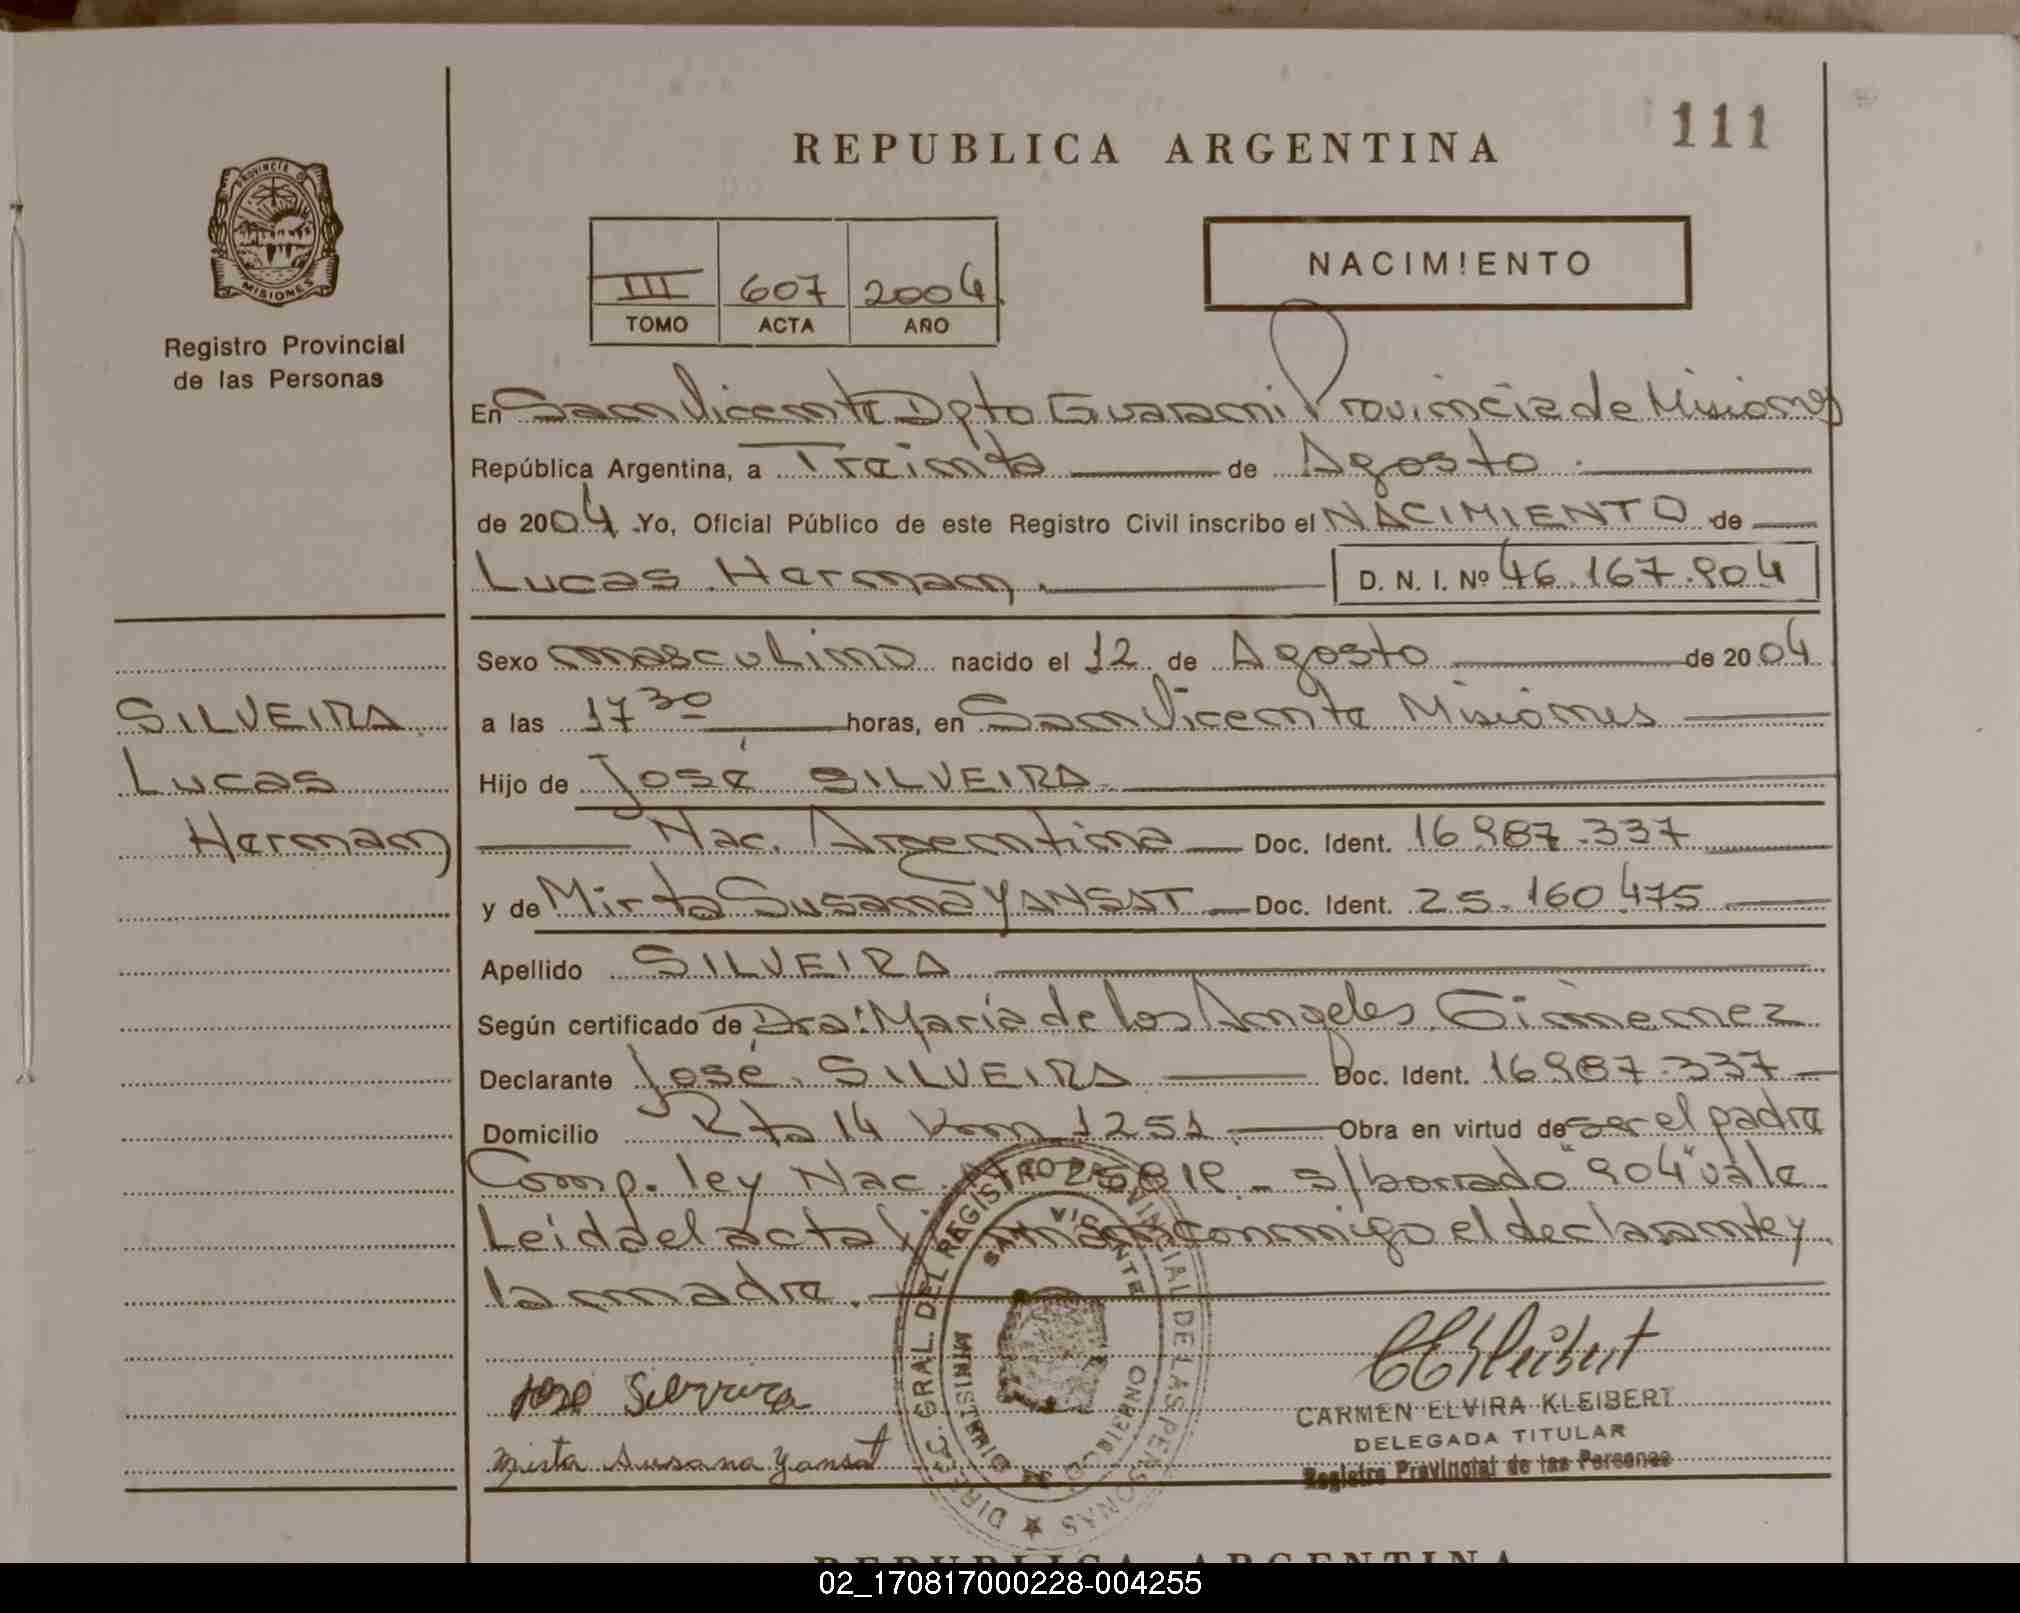 111
REPUBLICA ARGENTINA
PROVINCIA D
MISIONES
Registro Provincial
de las Personas
III 607 2004
TOMO ACTA AÑO
NACIMIENTO
En San Vicente Dpto Guarani Provincia de Misiones
República Argentina, a Treinta de Agosto
de 2004 Yo, Oficial Público de este Registro Civil inscribo el NACIMIENTO de
Lucas Hernan D. N. I. Nº 46.167.904
Sexo masculino nacido el 12 de Agosto de 2004
SILVEIRA
a las 17 30 horas, en San Vicente Misiones
Lucas
Hijo de José SILVEIRA
Hernan
Nac. Argentina Doc. Ident. 16.987.337
y de Mirta Susana YANSAT Doc. Ident. 25.160.475
Apellido SILVEIRA
Según certificado de Dra: María de los Angeles Gimenez
Declarante José SILVEIRA Doc. Ident. 16.987.337
Domicilio Rta 14 Km 1251 Obra en virtud de ser el padre
Comp. ley Nac. s/borrado "904" vale
Leida el acta conmigo el declarante y
la madre.
DIREC. GRAL. DEL REGISTRO PROVINCIAL DE LAS PERSONAS
SAN VICENTE
MINISTERIO DE GOBIERNO
José Silveira
Mirta Susana Yansat
CEKleibert
CARMEN ELVIRA KLEIBERT
DELEGADA TITULAR
Registro Provincial de las Personas
REPUBLICA ARGENTINA
02_170817000228-004255